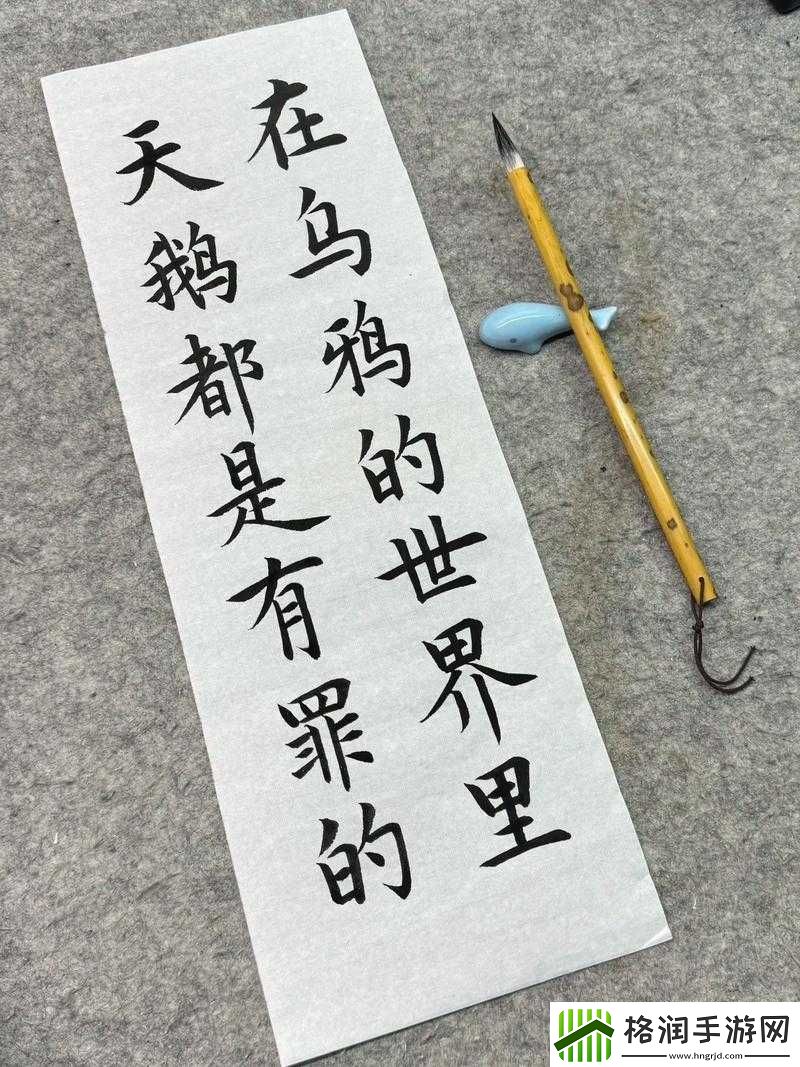 在乌鸦的世界里
天鹅都是有罪的
格润手游网
www.hngrjd.com